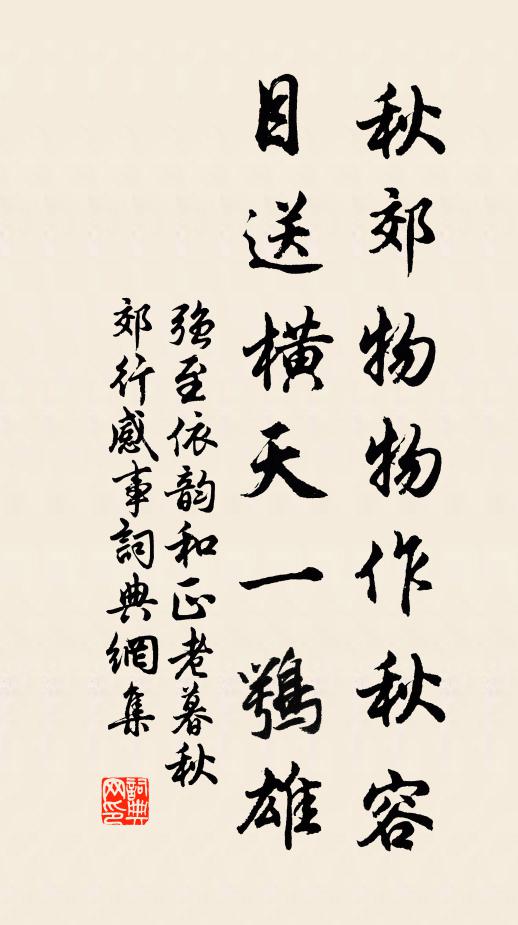 秋郊物物作秋容
目送橫天一鶚雄
強至依韵和正老暮秋
郊行感事詞典網集
詞典网印